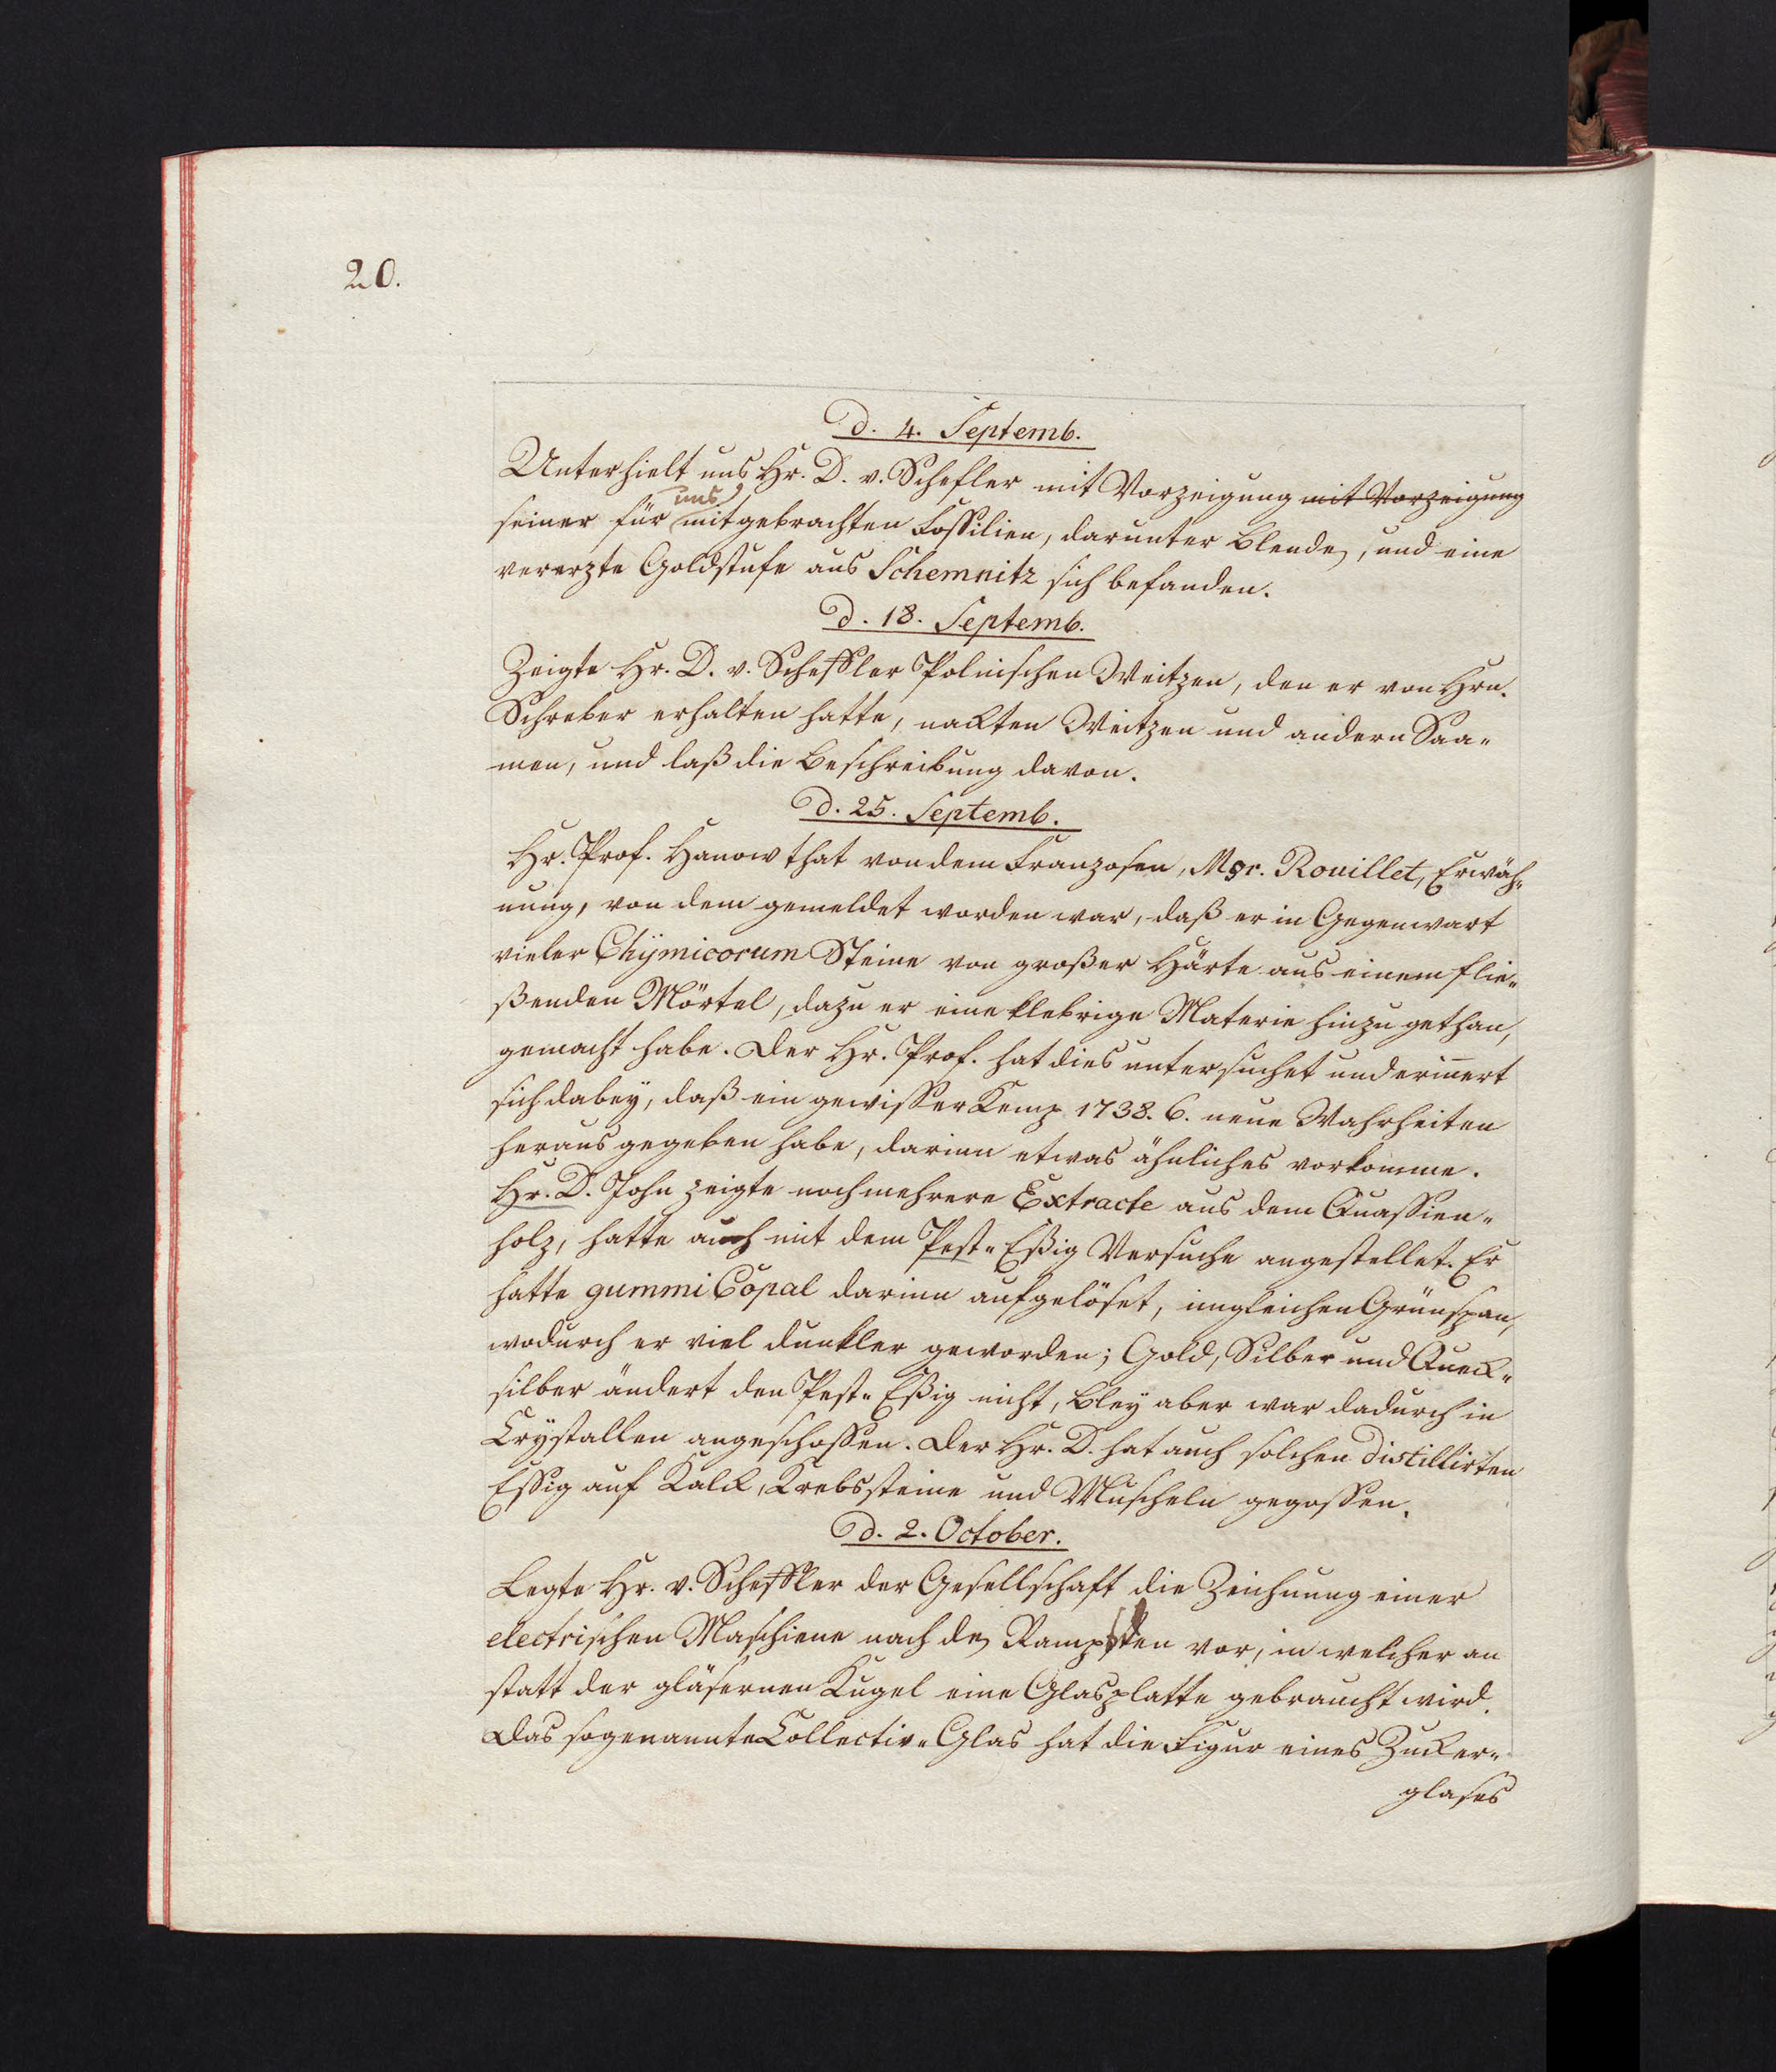 20.
D. 4. Septemb.
Unterhielt uns Hr. D. v. Schefler mit Vorzeigung mit Vorzeigung
uns
seiner für mitgebrachten Foßilien, darunter Blende, und eine
vererzte Goldstufe aus Schemnitz sich befanden.
D. 18. Septemb.
Zeigte Hr. D. v. Scheffler Polnischen Weitzen, den er von Hrn.
Schreber erhalten hatte, nackten Weitzen und andern Saa-
men, und laß die Beschreibung davon.
D. 25. Septemb.
Hr. Prof. Hanow that von dem Franzosen, Msr. Rouillet, Erwäh-
nung, von dem gemeldet worden war, daß er in Gegenwart
vieler Chÿmicorum Steine von großer Härte aus einem flie-
ßenden Mörtel, dazu er eine klebrige Materie hinzu gethan,
gemacht habe. Der Hr. Prof. hat dies untersuchet und erin̄ert
sich dabey, daß ein gewißer Kemp 1738. 6. neue Wahrheiten
heraus gegeben habe, darinn etwas ähnliches vorkomme.
Hr. D. John zeigte noch mehrere Extracte aus dem Quaßien-
holz, hatte auch mit dem Pest-Eßig Versuche angestellet. Er
hatte gummi Copal darinn aufgelöset, imgleichen Grünspan,
wodurch er viel dunkler geworden; Gold, Silber und Queck-
silber ändert den Pest-Eßig nicht, Bley aber war dadurch in
Crystallen angeschoßen. Der Hr. D. hat auch solchen distillirten
Eßig auf Kalck, Krebssteine und Muscheln gegoßen.
D. 2. October.
Legte Hr. v. Scheffler der Gesellschaft die Zeichnung einer
electrischen Maschiene nach de Ramsden vor, in welcher an
statt der gläsernen Kugel eine Glasplatte gebraucht wird.
Das sogenannte Collectiv-Glas hat die Figur eines Zucker-
glases